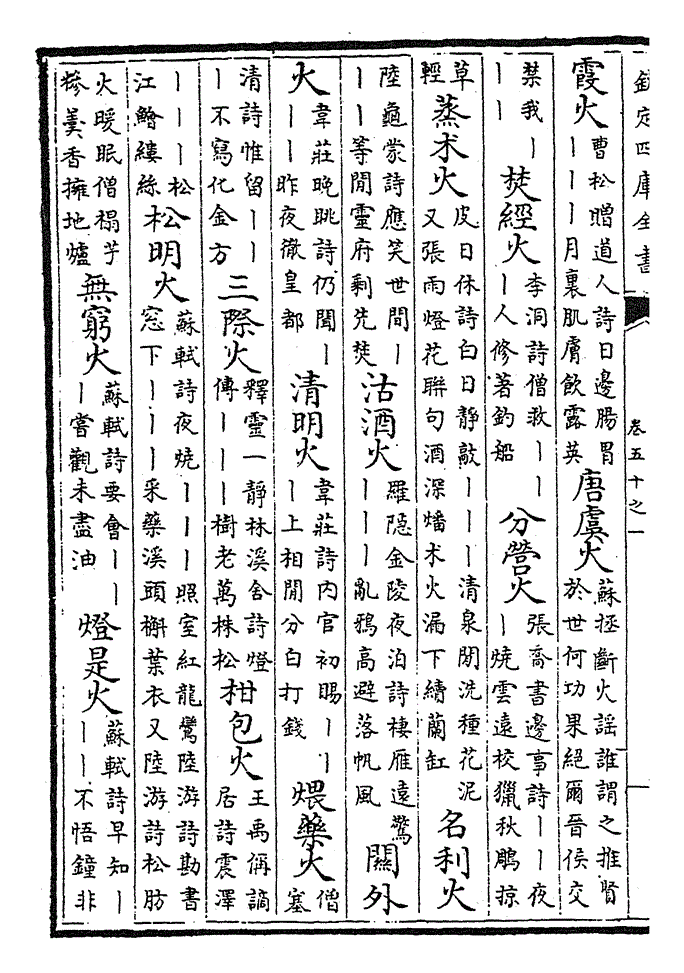 欽定四庫全書 卷五十之一 一
霞火 曹松贈道人詩日邊腸胃｜｜｜月裏肌膚飲露英 唐虞火 蘇拯斷火謡誰謂之推賢於世何功果絕爾晉侯交
禁我｜｜｜ 焚經火 李洞詩僧救｜｜｜人修著釣船 分營火 張喬書邊事詩｜｜夜｜燒雲遠校獵秋鵰掠
草輕 蒸术火 皮日休詩白日静敲｜｜｜清泉閒洗種花泥又張雨燈花聯句酒深燔术火漏下續蘭缸 名利火
陸龜蒙詩應笑世間｜｜｜等閒靈府剩先焚 沽酒火 羅隱金陵夜泊詩棲雁遠驚｜｜｜亂鴉高避落帆風 關外
火 韋莊晚眺詩仍聞｜｜｜昨夜徹皇都 清明火 韋莊詩内官初賜｜｜｜上相閒分白打錢 煨藥火 僧塞
清詩惟留｜｜｜不寫化金方 三際火 釋靈一静林溪舍詩燈傳｜｜｜樹老萬株松 柑包火 王禹偁謫居詩震澤
｜｜｜松江鱠縷絲 松明火 蘇軾詩夜燒｜｜｜照室紅龍鸞陸游詩勘書窓下｜｜｜采藥溪頭槲葉衣又陸游詩松肪
火暖眠僧榻芋糝羮香擁地爐 無窮火 蘇軾詩要會｜｜｜嘗觀未盡油 燈是火 蘇軾詩早知｜｜｜不悟鐘非